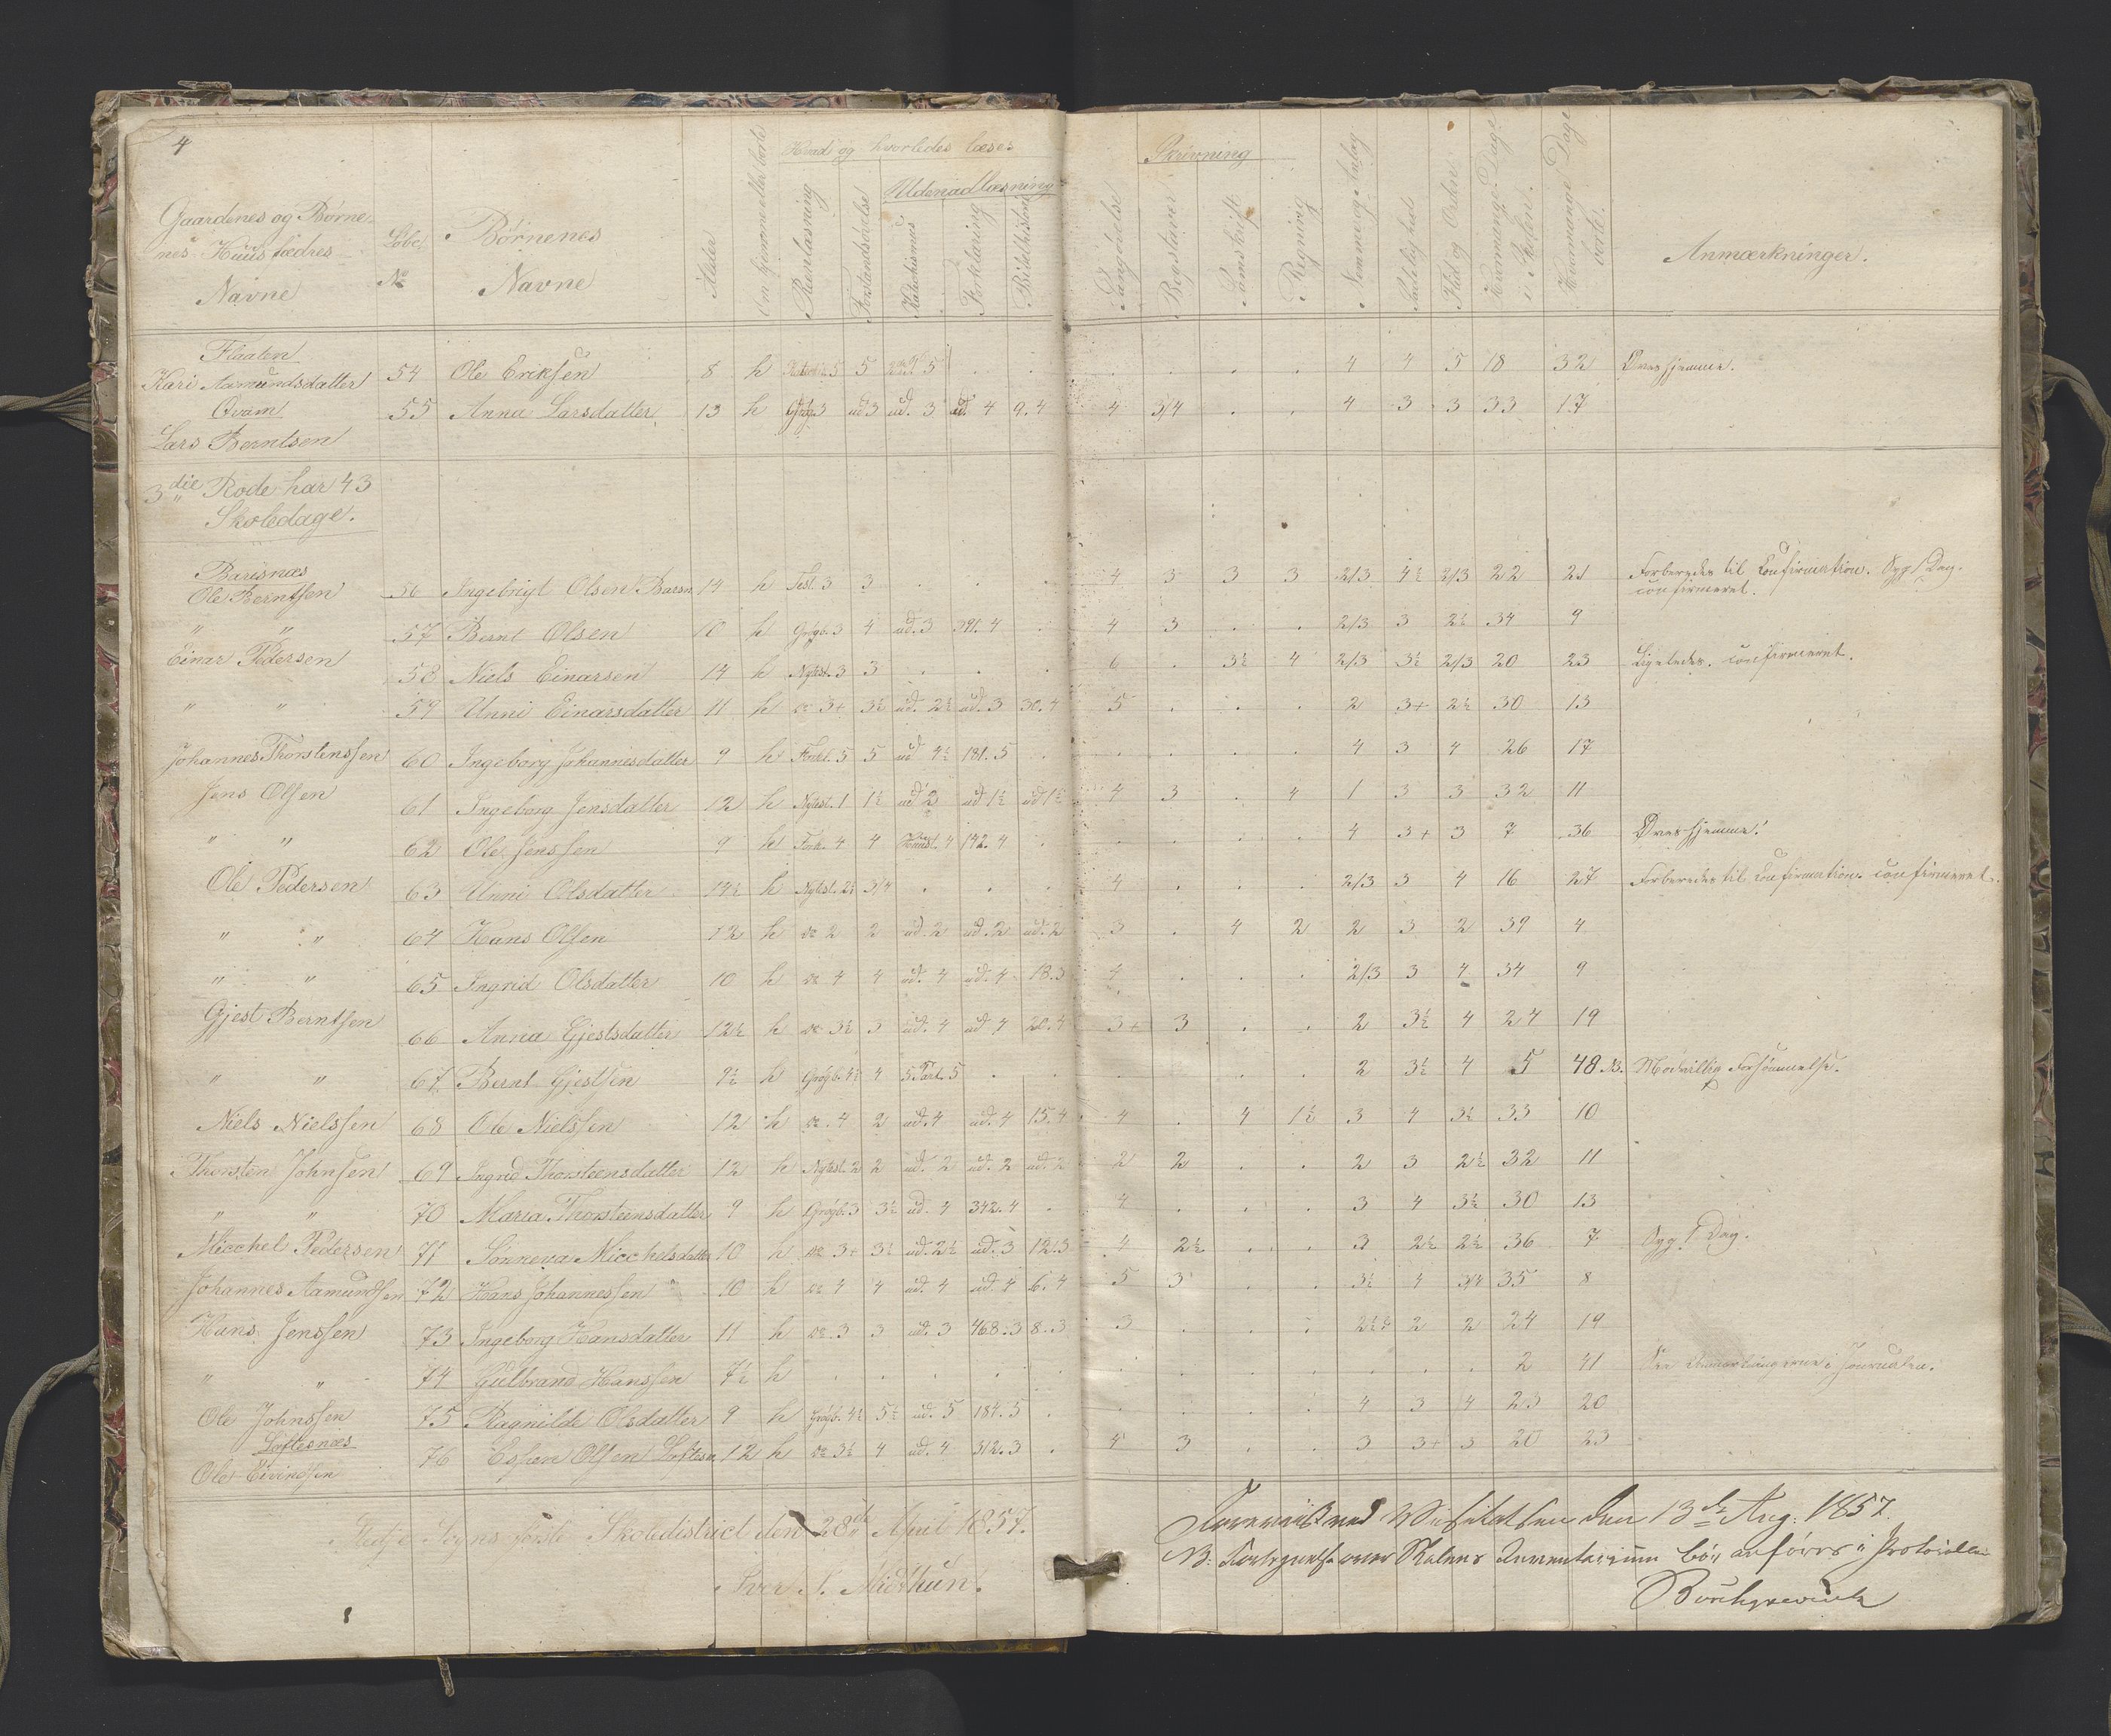 4
Gaardenes og Børne-
nes Huusfædres
Navne
Løbe
No
Børnenes
Navne
Alder
Om hjemme eller borte
Hvad og hvorledes læses
Renlæsning
Forstandsøvelse
Udenadlæsning
Katechismus
Forklaring
Bibelhistorie
Skrivning
Bogstaver
Regning
Nemme og Anlag
Sædelighed
Flid og Orden
Hvormange Dage
i Skolen.
Hvormange Dage
borte.
Anmærkninger.
Flaaten
Kari Aamundsdatter 54 Ole Eriksen 8 h 5 5 5 . . . . . . 4 4 5 18 32 Øves hjemme.
Qvam 55 Anna Larsdatter 13 h 3 ud 3 ud. 3 ud. 4 9. 4 4 3/4 . . 4 3 3 33 17
Lars Berntsen
3die Rode har 43
Skoledage.
Barsnæs
Ole Berntsen 56 Ingebrigt Olsen Barsn 14 h Test. 3 3 . . . 4 3 3 3 2/3 4½ 2/3 22 21 Forberedes til Confirmation. Syg 1 Dag.
confirmeret.
" " 57 Bernt Olsen 10 h Grøgb. 3 4 ud. 3 391. 4 . 4 3 . . 2/3 3 2½ 34 9
Einar Pedersen 58 Niels Einarsen 14 h Nytest. 3 3 . . . 6 . 3½ 4 2/3 3½ 2/3 20 23 Ligeledes. confirmeret.
" " 59 Unni Einarsdatter 11 h do 3+ 3½ ud. 2½ ud. 3 30. 4 5 . . . 2 3+ 2½ 30 13
Johannes Thorstenssen 60 Ingeborg Johannesdatter 9 h Forkl. 5 5 ud 4½ 181. 5 . . . . . 4 3 4 26 17
Jens Olsen 61 Ingeborg Jensdatter 12 h Nytest. 1 1½ ud 2 ud. 1½ ud 1½ 4 3 . 4 1 3 3 32 11
" " 62 Ole Jenssen 9 h Fork. 4 4 4 142. 4 . . . . . 4 3+ 3 7 36 Øves hjemme!
Ole Pedersen 63 Unni Olsdatter 14½ h Nytest. 2½ 3/4 . . . 4 . . . 2/3 3 4 16 27 Forberedes til Confirmation. confirmeret.
" " 64 Hans Olsen 12 h do 2 2 ud. 2 ud. 2 ud. 2 3 . 4 2 2 3 2 39 4
" " 65 Ingrid Olsdatter 10 h do 4 4 ud. 4 ud. 4 18. 3 4 . . . 2/3 3 4 34 9
Gjest Berntsen 66 Anna Gjestsdatter 12½ h do 3½ 3 ud. 4 ud 4 20. 4 3+ 3 . . 2 3½ 4 24 19
" " 67 Bernt Gjestsen 9½ h Grøgb. 4½ 4 5 Part. 5 . . . . . . 2 3½ 4 5 48 NB. Modvillig Forsømmelse.
Niels Nielssen 68 Ole Nielssen 12 h do. 4 2 ud. 4 ud. 4 15. 4 4 . 4 1½ 3 4 3½ 33 10
Thorsten Johnsen 69 Ingrid Thorsteensdatter 12 h Nytest. 2 2 ud. 2 ud. 2 ud. 2 2 2 . . 2 3 2½ 32 11
" " 70 Maria Thorsteensdatter 9 h Grøgb. 3 3½ ud. 4 342. 4 . 4 . . . 3 4 3½ 30 13
Micchel Pedersen 71 Sønneva Micchelsdatter 10 h do 3+ 3½ ud. 2½ ud. 3 12. 3 4 2½ . . 3 2½ 2½ 36 7 Syg 1 Dag.
Johannes Aamundsen 72 Hans Johannessen 10 h do 4 4 ud. 4 ud. 4 6. 4 5 3 . . 3½ 4 3/4 35 8
Hans Jenssen 73 Ingeborg Hansdatter 11 h do. 3 3 ud. 3 468. 3 8. 3 3 . . . 2½ 2 2 24 19
" " 74 Gulbrand Hanssen 7½ h . . . . . . . . . . . . 2 41 See Anmærkningerne i Journalen.
Ole Johnssen 75 Ragnilde Olsdatter 9 h Grøgb. 4½ 5½ ud. 5 184. 5 . . . . . 4 3 4 23 20
Loftesnæs
Ole Eivindsen 76 Essæn Olsen Loftesn 12 h do 3½ 4 ud. 4 312. 3 . 4 3 . . 3 3+ 3 20 23
Sogns første Skoledistrict den 28de April 1857.
Iver S. Midthun.
Foreviist ved den 13de Aug. 1857.
NB. Fortegnelse over Skolens Inventarium bör anföres i Protocollen
Borchgrevink